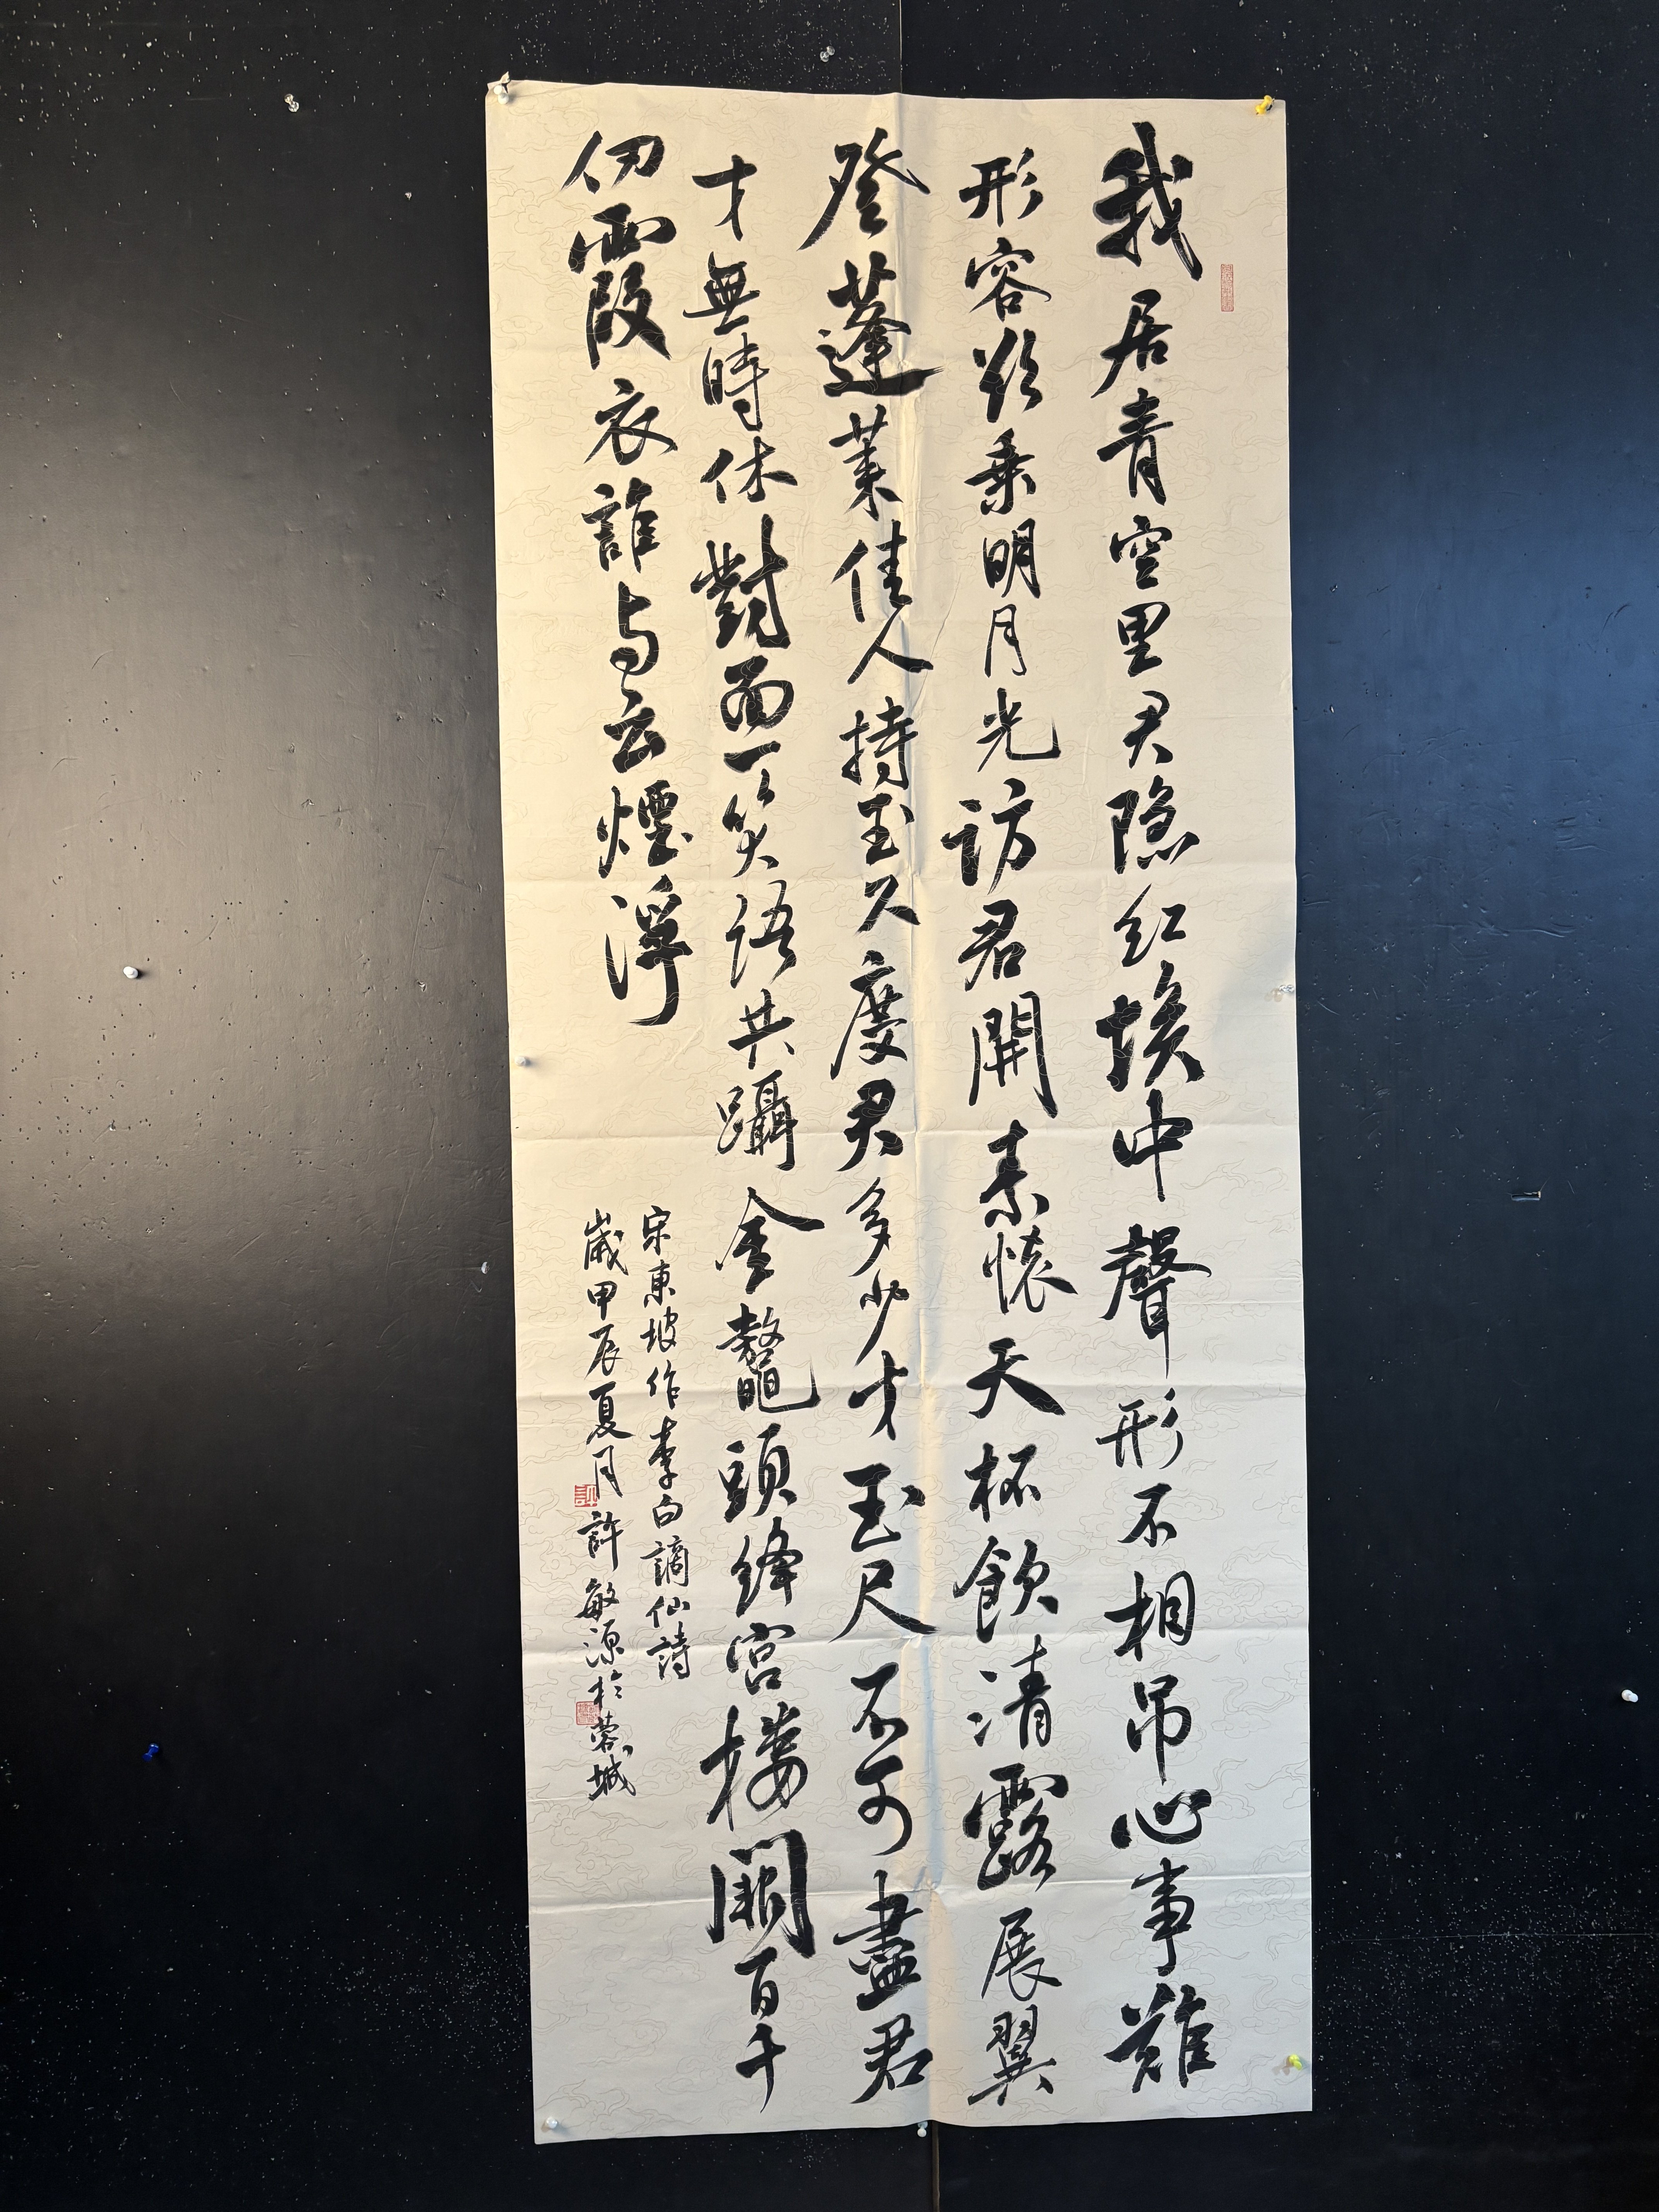 我居青空里君隐红埃中聲形不相吊心事難
形容欲乘明月光访君開素懷天杯飲清露展翼
登蓬莱佳人持玉尺度君多少才玉尺不可盡君
才無時休對面一笑语共躡金鼇頭绛宫樓闕百千
仞霞衣誰与云煙浮
宋東坡作李白謫仙詩
歲甲辰夏月許敏源於蓉城